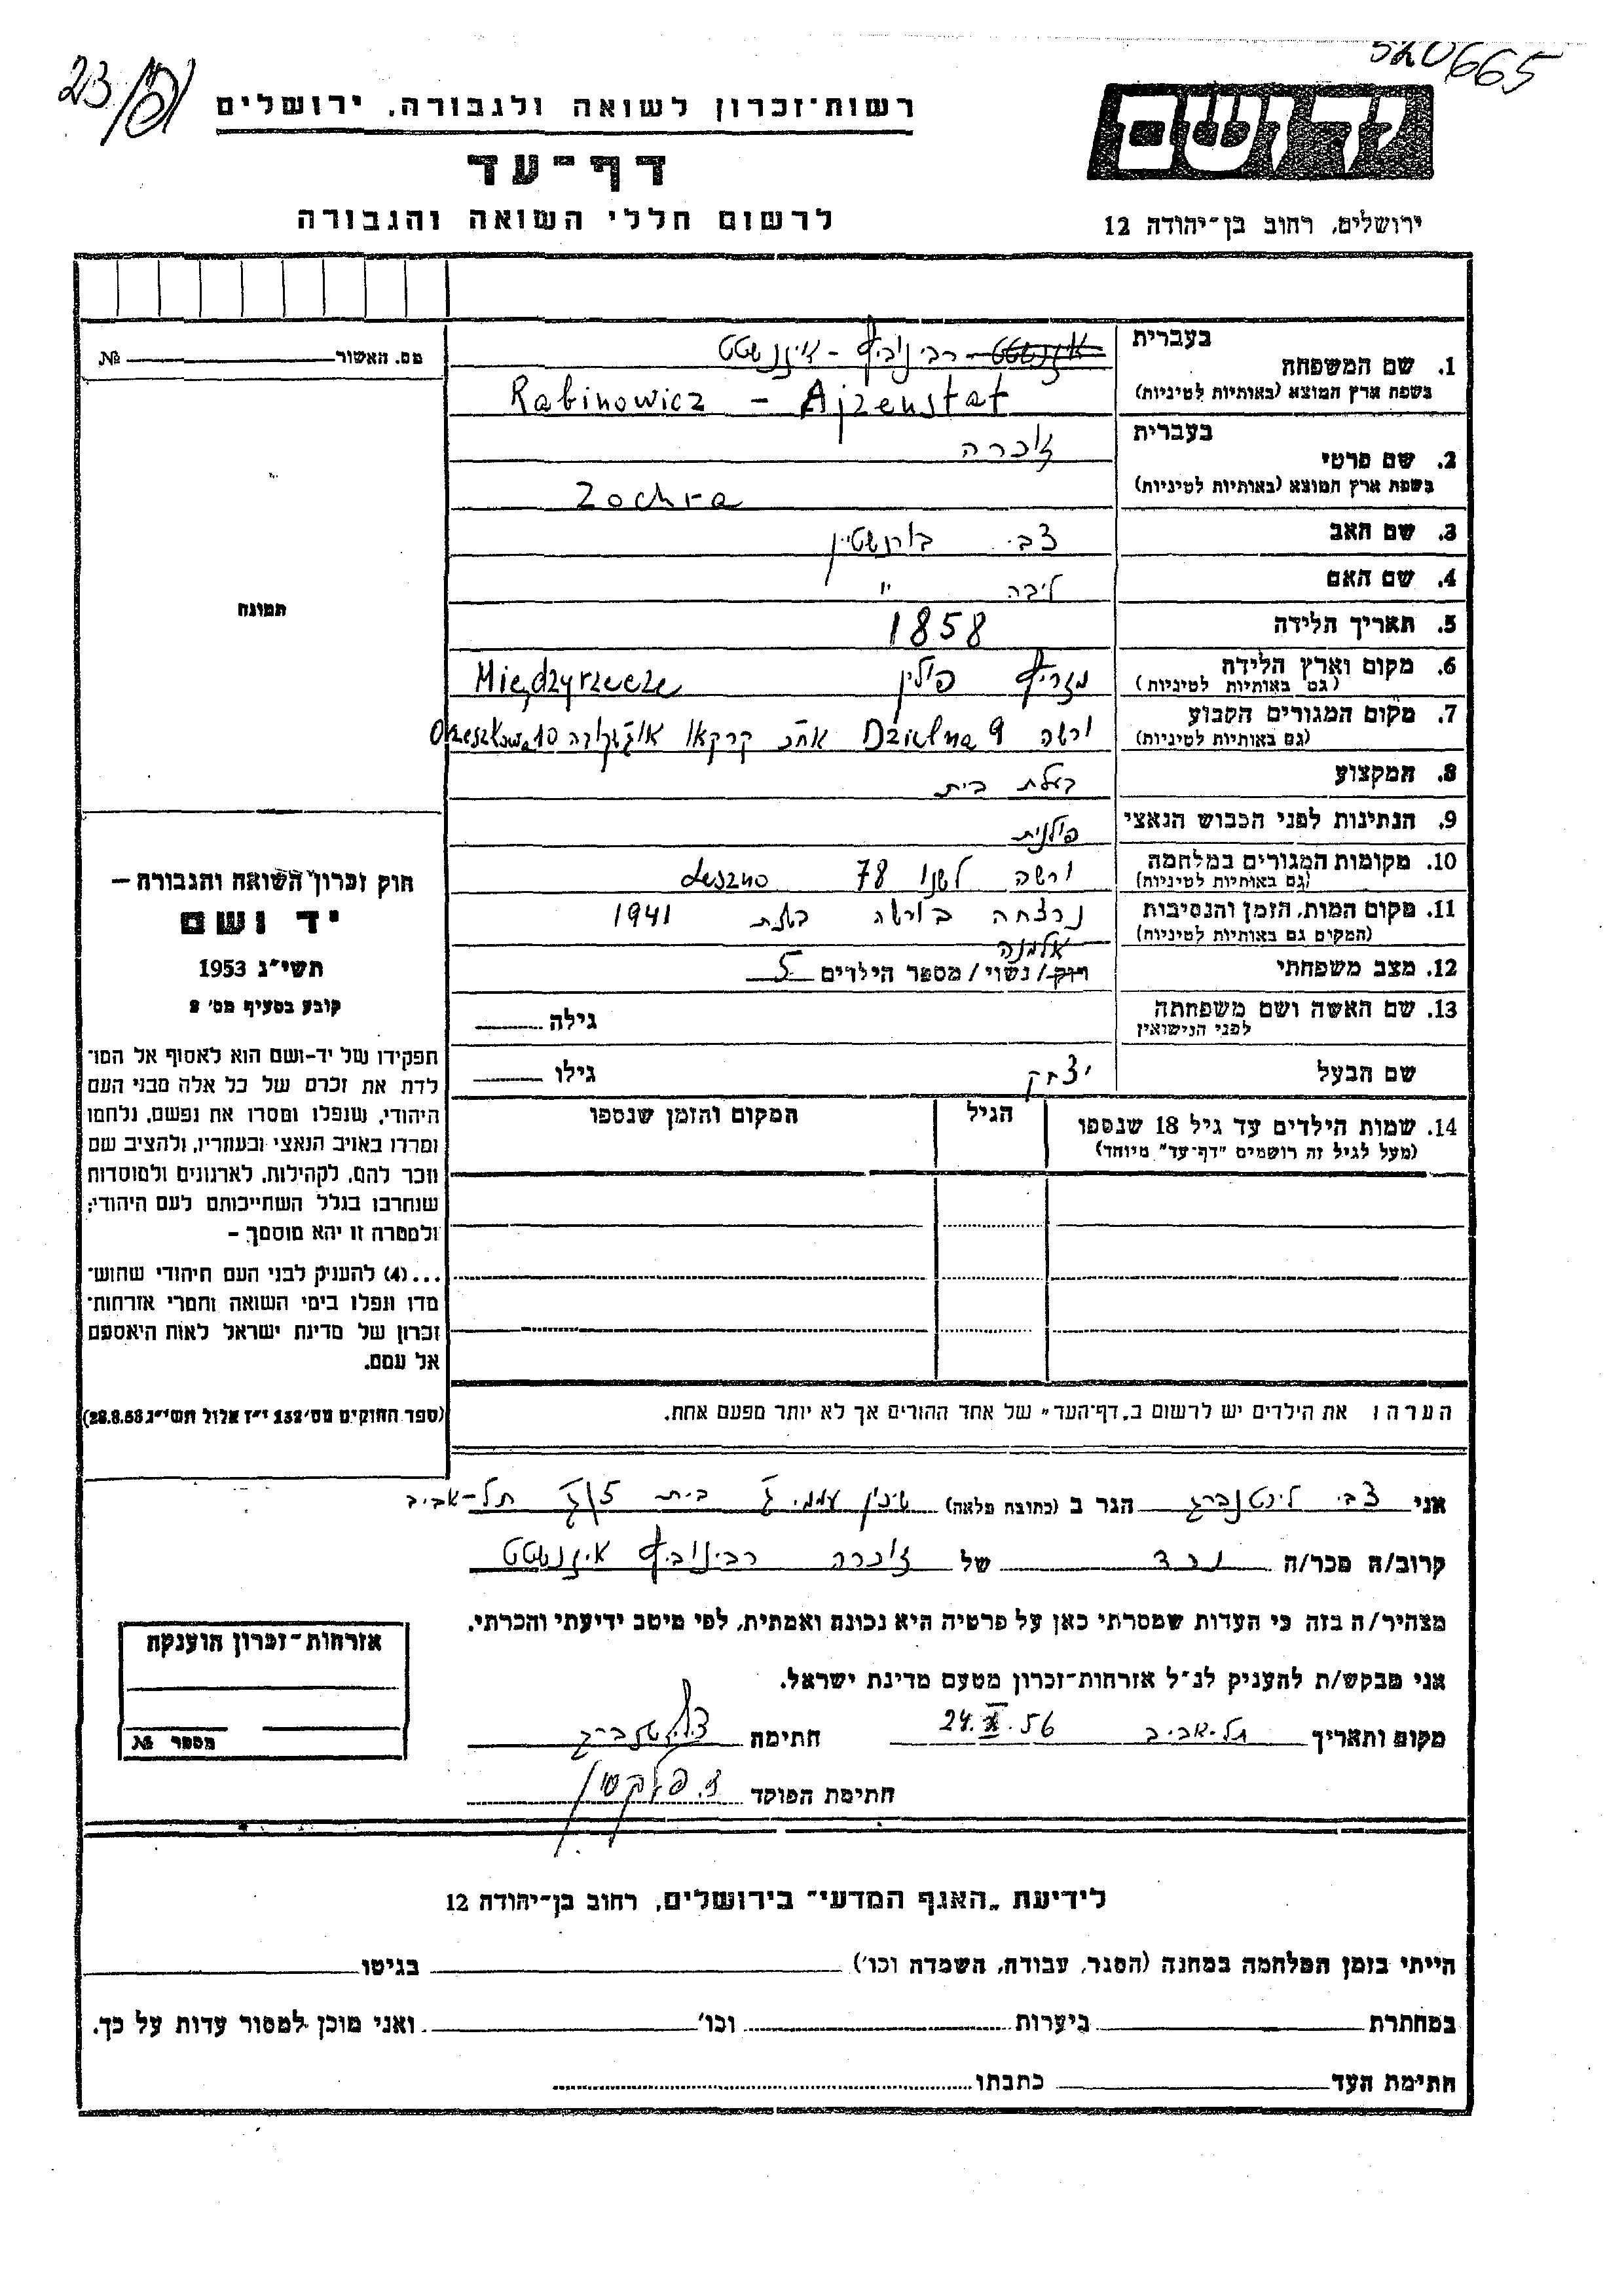 520665
23/
רשות־זכרון לשואה ולגבורה, ירושלים
יד ושם
דף־עד
לרשום חללי השואה והגבורה
ירושלים, רחוב בן־יהודה 12
מס. האשור № 
בעברית
1. שם המשפחה
רבינוביץ - איזנשטט
בשפת ארץ המוצא (באותיות לטיניות)
Rabinowicz - Ajzenstat
בעברית
2. שם פרטי
זוכרה
בשפת ארץ המוצא (באותיות לטיניות)
Zochra
3. שם האב
צבי בורנשטיין
4. שם האם
ליבה "
5. תאריך הלידה
1858
6. מקום וארץ הלידה
(גם באותיות לטיניות)
מזריץ פולין Międzyrzecze
7. מקום המגורים הקבוע
(גם באותיות לטיניות)
ורשה Dzielna 9 אח"כ קרקאו Orzeszkowa 10
8. המקצוע
בעלת בית
9. הנתינות לפני הכבוש הנאצי
פולנית
10. מקומות המגורים במלחמה
(גם באותיות לטיניות)
ורשה לשנו 78 Leszno
11. מקום המות, הזמן והנסיבות
(המקום גם באותיות לטיניות)
נרצחה בורשה בשנת 1941
12. מצב משפחתי
אלמנה
רוק/נשוי/מספר הילדים 5
13. שם האשה ושם משפחתה
לפני הנישואין
גילה
שם הבעל
יצחק
גילו
14. שמות הילדים עד גיל 18 שנספו
(מעל לגיל זה רושמים "דף־עד" מיוחד)
הגיל
המקום והזמן שנספו
הערה: את הילדים יש לרשום ב„דף־העד" של אחד ההורים אך לא יותר מפעם אחת.
תמונה
חוק זכרון השואה והגבורה –
יד ושם
תשי"ג 1953
קובע בסעיף מס' 2
תפקידו של יד-ושם הוא לאסוף אל המו־
לדת את זכרם של כל אלה מבני העם
היהודי, שנפלו ומסרו את נפשם, נלחמו
ומרדו באויב הנאצי ובעוזריו, ולהציב שם
וזכר להם, לקהילות, לארגונים ולמוסדות
שנחרבו בגלל השתייכותם לעם היהודי;
ולמטרה זו יהא מוסמך –
...(4) להעניק לבני העם היהודי שהוש־
מדו ונפלו בימי השואה והמרי אזרחות־
זכרון של מדינת ישראל לאות היאספם
אל עמם.
(ספר החוקים מס' 132 י"ז אלול תשי"ג 28.8.53)
אני צבי ליכטנברג הגר ב (כתובת מלאה) שיכון עממי ג' בית תל-אביב
קרוב/ה מכר/ה נכד של זוכרה רבינוביץ איזנשטט
מצהיר/ה בזה כי העדות שמסרתי כאן על פרטיה היא נכונה ואמתית, לפי מיטב ידיעתי והכרתי.
אני מבקש/ת להעניק לנ"ל אזרחות־זכרון מטעם מדינת ישראל.
מקום ותאריך תל-אביב 24.X.56 חתימה צ. ליכטנברג
חתימת הפוקד
אזרחות־זכרון הוענקה
מספר №
לידיעת „האגף המדעי" בירושלים, רחוב בן־יהודה 12
הייתי בזמן המלחמה במחנה (הסגר, עבודה, השמדה וכו') בגיטו
במחתרת ביערות וכו' ואני מוכן למסור עדות על כך.
חתימת העד כתבתו